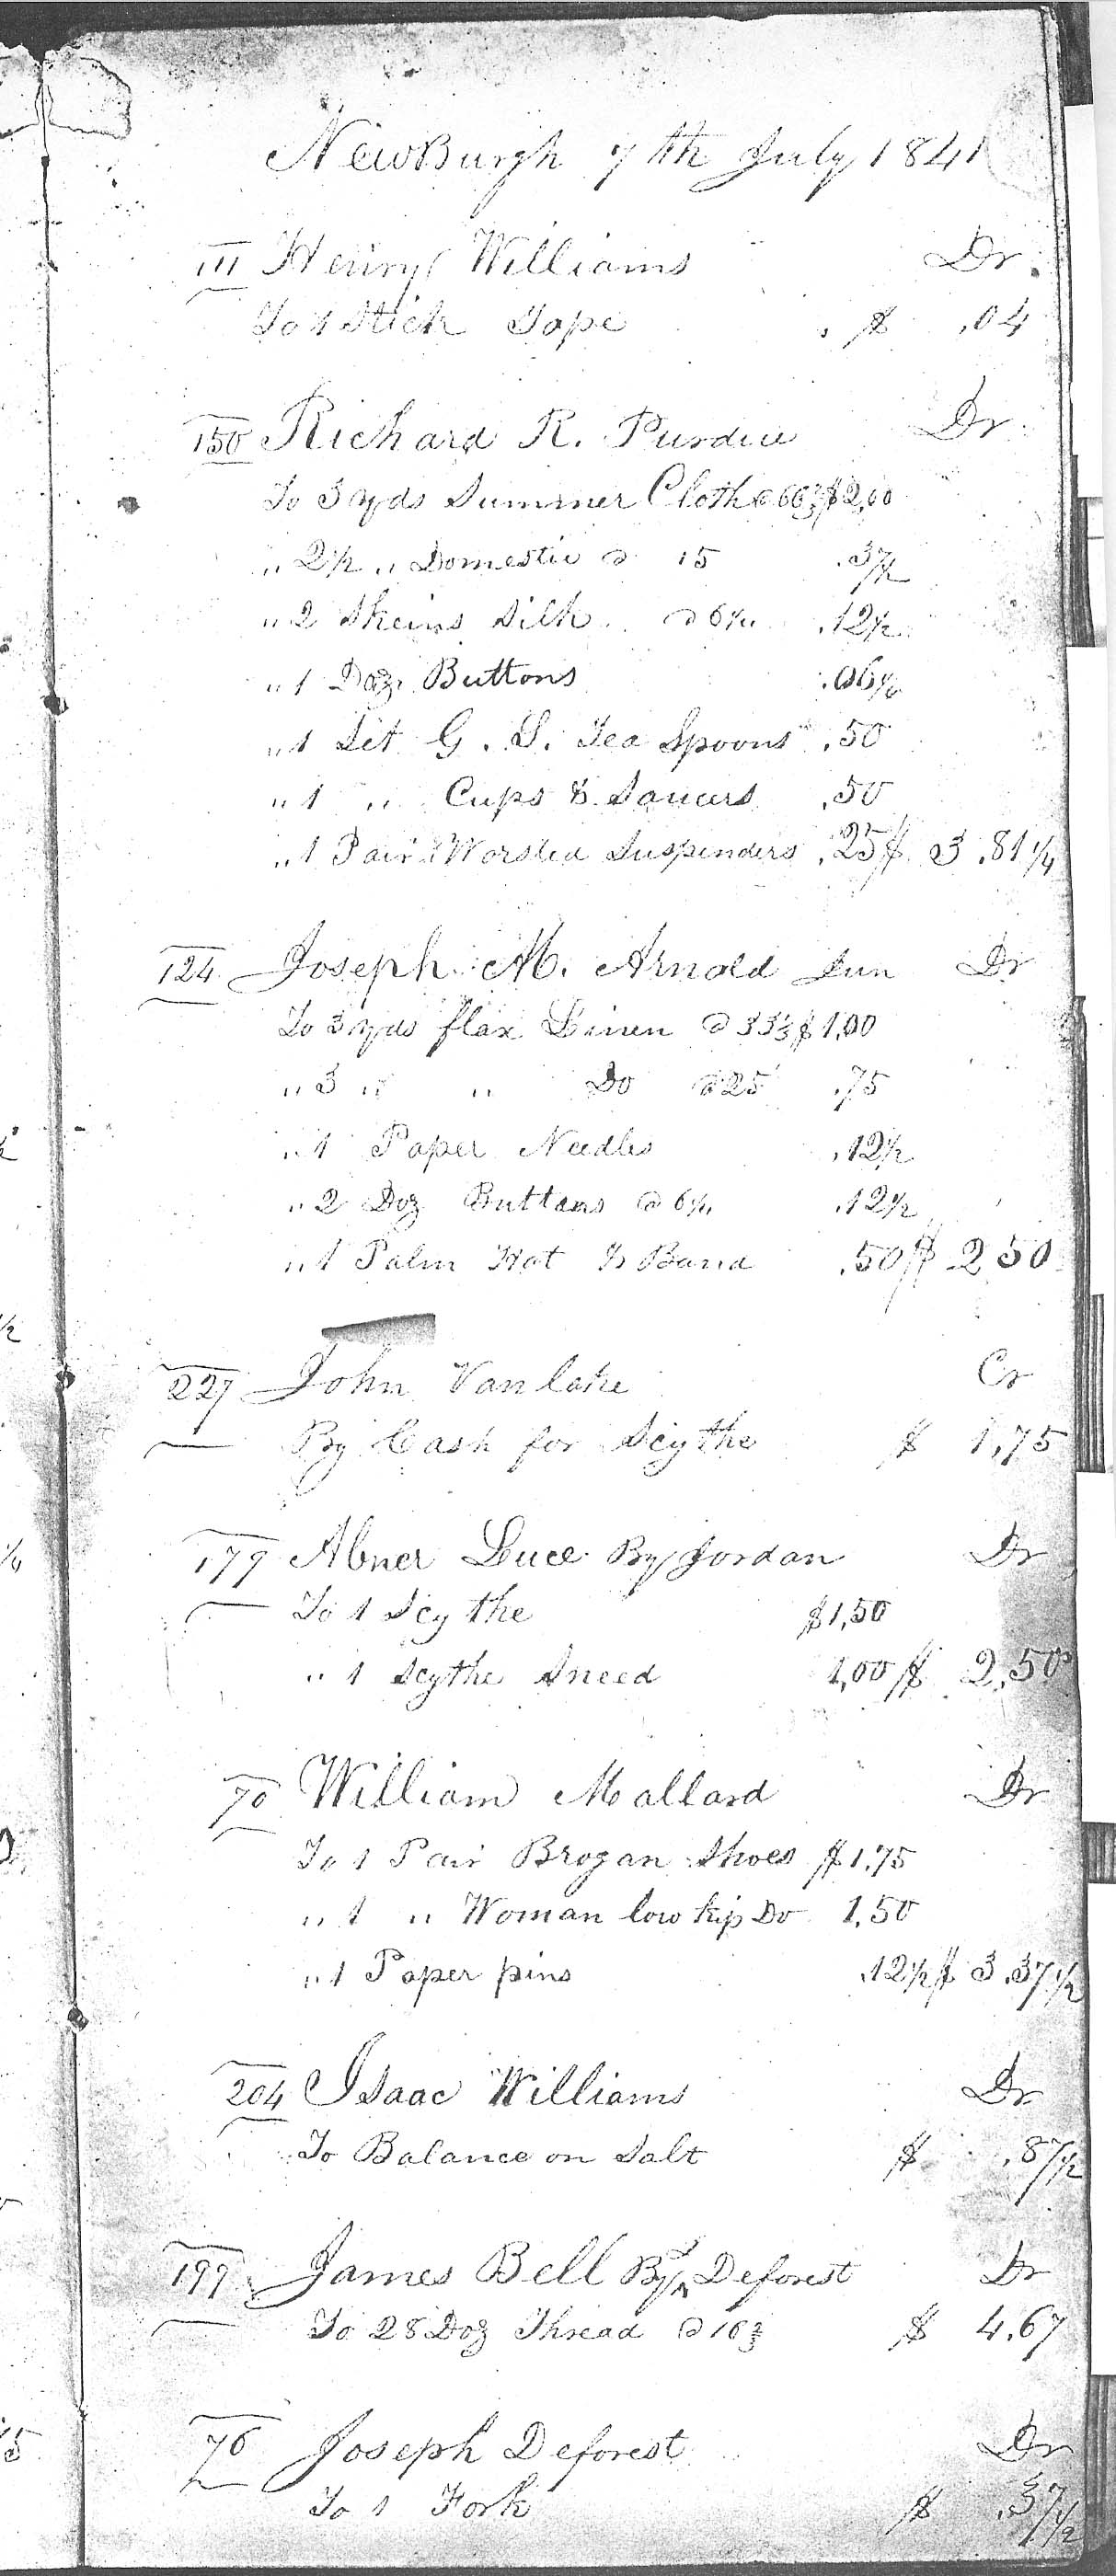 NewBurgh 7th July 1841
111 Henry Williams Dr.
To 1 Stick Tape $ .04
150 Richard R. Purdue Dr.
To 3 yds Summer Cloth @ 66⅔ $2,00
,, 2½ ,, Domestic @ 15 .37½
,, 2 Skeins Silk @ 6¼ .12½
,, 1 Doz. Buttons .06¼
,, 1 Set G. S. Tea Spoons .50
,, 1 ,, Cups & Saucers .50
,, 1 Pair Worsted Suspenders .25 $ 3.81¼
124 Joseph M. Arnold Jun Dr
To 3 yds flax Linen @ 33⅓ $1,00
,, 3 ,, ,, Do @ 25 .75
,, 1 Paper Needles .12½
,, 2 Doz Buttons @ 6¼ .12½
,, 1 Palm Hat & Band .50 $ 2 50
227 John Vanlake Cr
By Cash for Scythe $ 1,75
179 Abner Luce By Jordan Dr
To 1 Scythe $1,50
,, 1 Scythe Sneed 1,00 $ 2.50
70 William Mallard Dr
To 1 Pair Brogan Shoes $1.75
,, 1 ,, Woman low kip Do 1.50
,, 1 Paper pins .12½ $ 3.37½
204 Isaac Williams Dr
To Balance on Salt $ .87½
199 James Bell By J Deforest Dr
To 28 Doz Thread @ 16⅔ $ 4.67
76 Joseph Deforest Dr
To 1 Fork $ .37½